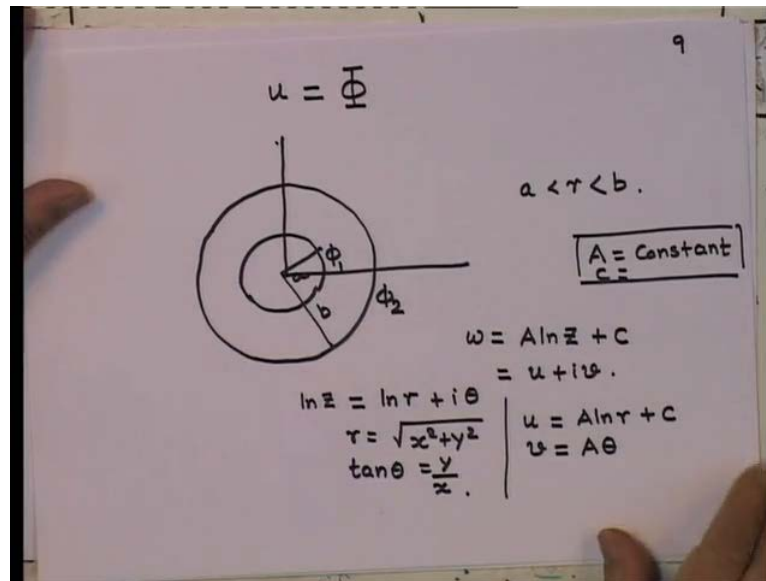 9
u = Φ
a < r < b.
A = Constant
C =
Φ₁
a
Φ₂
b
w = A ln z + C
= u + iv.
ln z = ln r + i θ
r = √x²+y²
tan θ = y/x.
u = A ln r + C
v = A θ